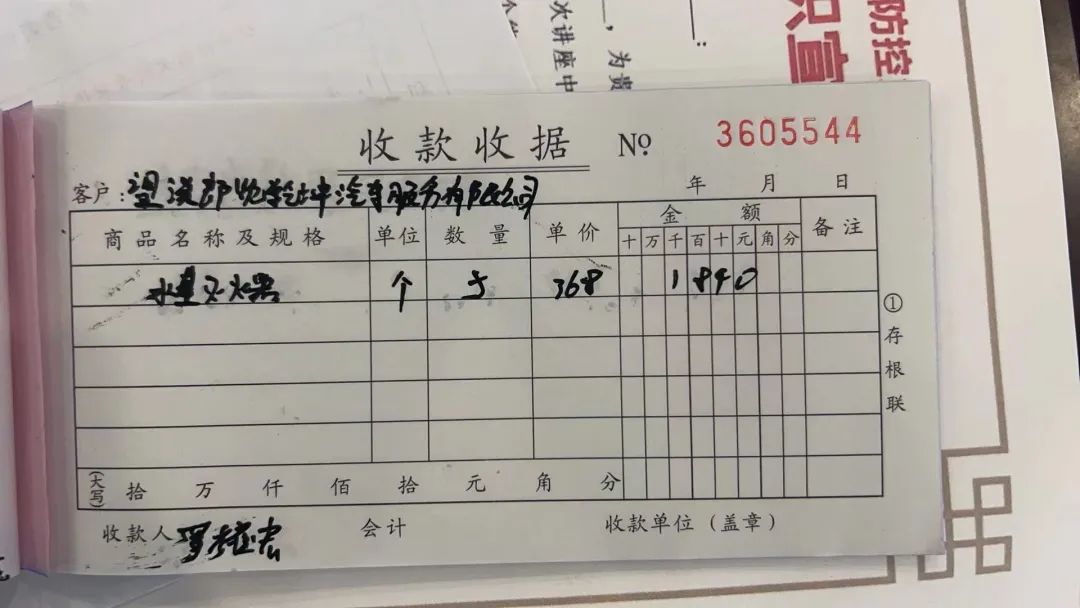 防控
识宣
次讲座中
，为贵
收款收据 № 3605544
客户：汽车服务有限公司 年 月 日
商品名称及规格 单位 数量 单价 金额 备注
十 万 千 百 十 元 角 分
水基灭火器 个 5 368 1 8 4 0
①存根联
(大写) 拾 万 仟 佰 拾 元 角 分
收款人 罗 会计 收款单位（盖章）